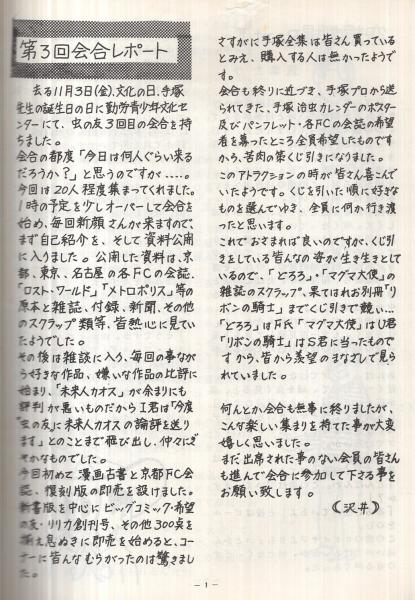 第3回会合レポート
去る11月3日(金)、文化の日、手塚
先生の誕生日の日に勤労青少年文化セ
ンターにて、虫の友3回目の会合を持
ちました。
会合の都度「今日は何人ぐらい来る
だろうか?」と思うのですが‥‥。
今回は20人程度集まってくれました。
1時の予定を少しオーバーして会合を
始め、毎回新顔さんが来ますので、
まず自己紹介を、そして資料公開
に入りました。公開した資料は、京
都、東京、名古屋の各FCの会誌、
「ロスト・ワールド」「メトロポリス」等の
原本と雑誌、付録、新聞、その他
のスクラップ類等、皆熱心に見てい
たようでした。
その後は雑談に入り、毎回の事なが
ら好きな作品、嫌いな作品の批評に
始まり、「未来人カオス」が余まりにも
評判が悪いものだからI君は「今度
虫の友』に未来人カオスの論評を送り
ます」とのことまで飛び出し、仲々にぎ
やかなものでした。
今回初めて漫画古書と京都FC会
誌、復刻版の即売を設けました。
新書版を中心にビッグコミック・希望
の友・リリカ創刊号、その他300点を
揃え息ぬきに即売を始めると、コー
ナーに皆んなむらがったのは驚きまし
た。
さすがに手塚全集は皆さん買っている
とみえ、購入する人は無かったようで
す。
会合も終りに近づき、手塚プロから送
られてきた、手塚治虫カレンダーのポスター
及びパンフレット・各FCの会誌の希望
者を募ったところ全員希望したものです
から、苦肉の策くじ引きになりました。
このアトラクションの時が皆さん喜こんで
いたようです。くじを引いた順に好きな
ものを選んでゆき、全員に何か行き渡
ったと思います。
これでおさまれば良いのですが、くじ引
きをしている皆んなの姿が生き生きとして
いるので、「どろろ」・「マグマ大使」の
雑誌のスクラップ、果てはれお別冊「リ
ボンの騎士」までくじ引きで競い…
「どろろ」はF氏「マグマ大使」はU君
「リボンの騎士」はS君に当ったもので
すから、皆から羨望のまなざしで見ら
れていました。
何んとか会合も無事に終りましたが、
こんな楽しい集まりを持てた事が大変
嬉しく思いました。
まだ出席された事のない会員の皆さん
も進んで会合に参加して下さる事を
お願い致します。
(沢井)
-1-